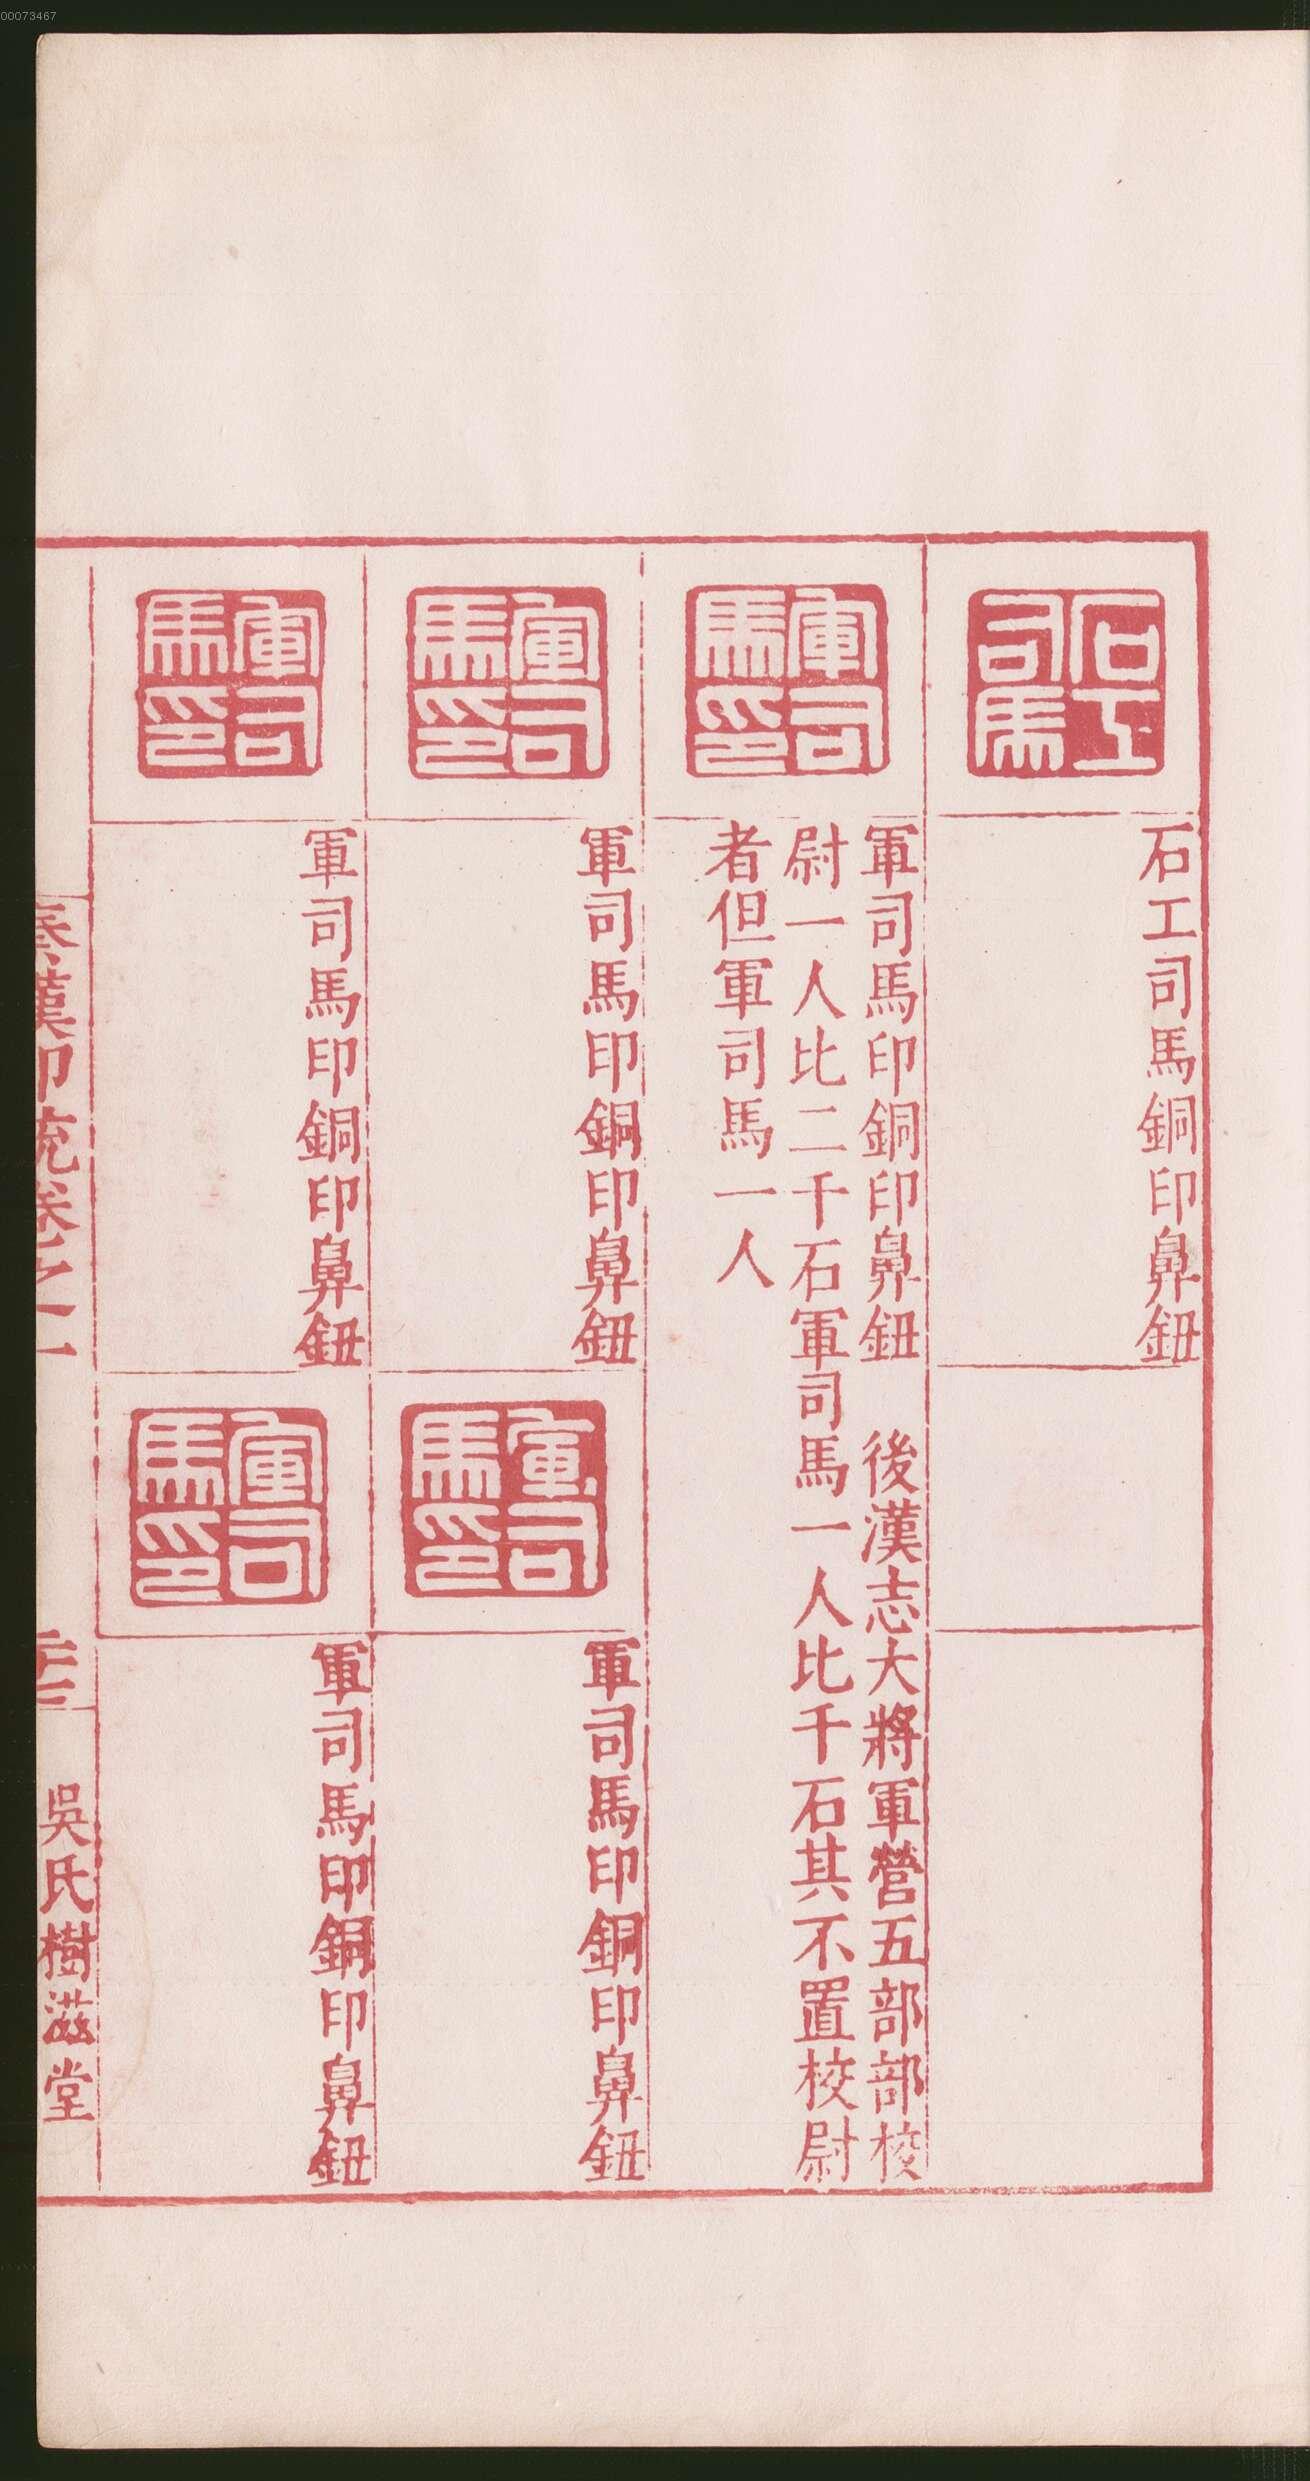 00073467
石工司馬
石工司馬銅印鼻鈕
軍司馬印
軍司馬印銅印鼻鈕 後漢志大將軍營五部部校
尉一人比二千石軍司馬一人比千石其不置校尉
者但軍司馬一人
軍司馬印
軍司馬印銅印鼻鈕
軍司馬印
軍司馬印銅印鼻鈕
軍司馬印
軍司馬印銅印鼻鈕
軍司馬印
軍司馬印銅印鼻鈕
秦漢印統卷之二
二十三
吳氏樹滋堂